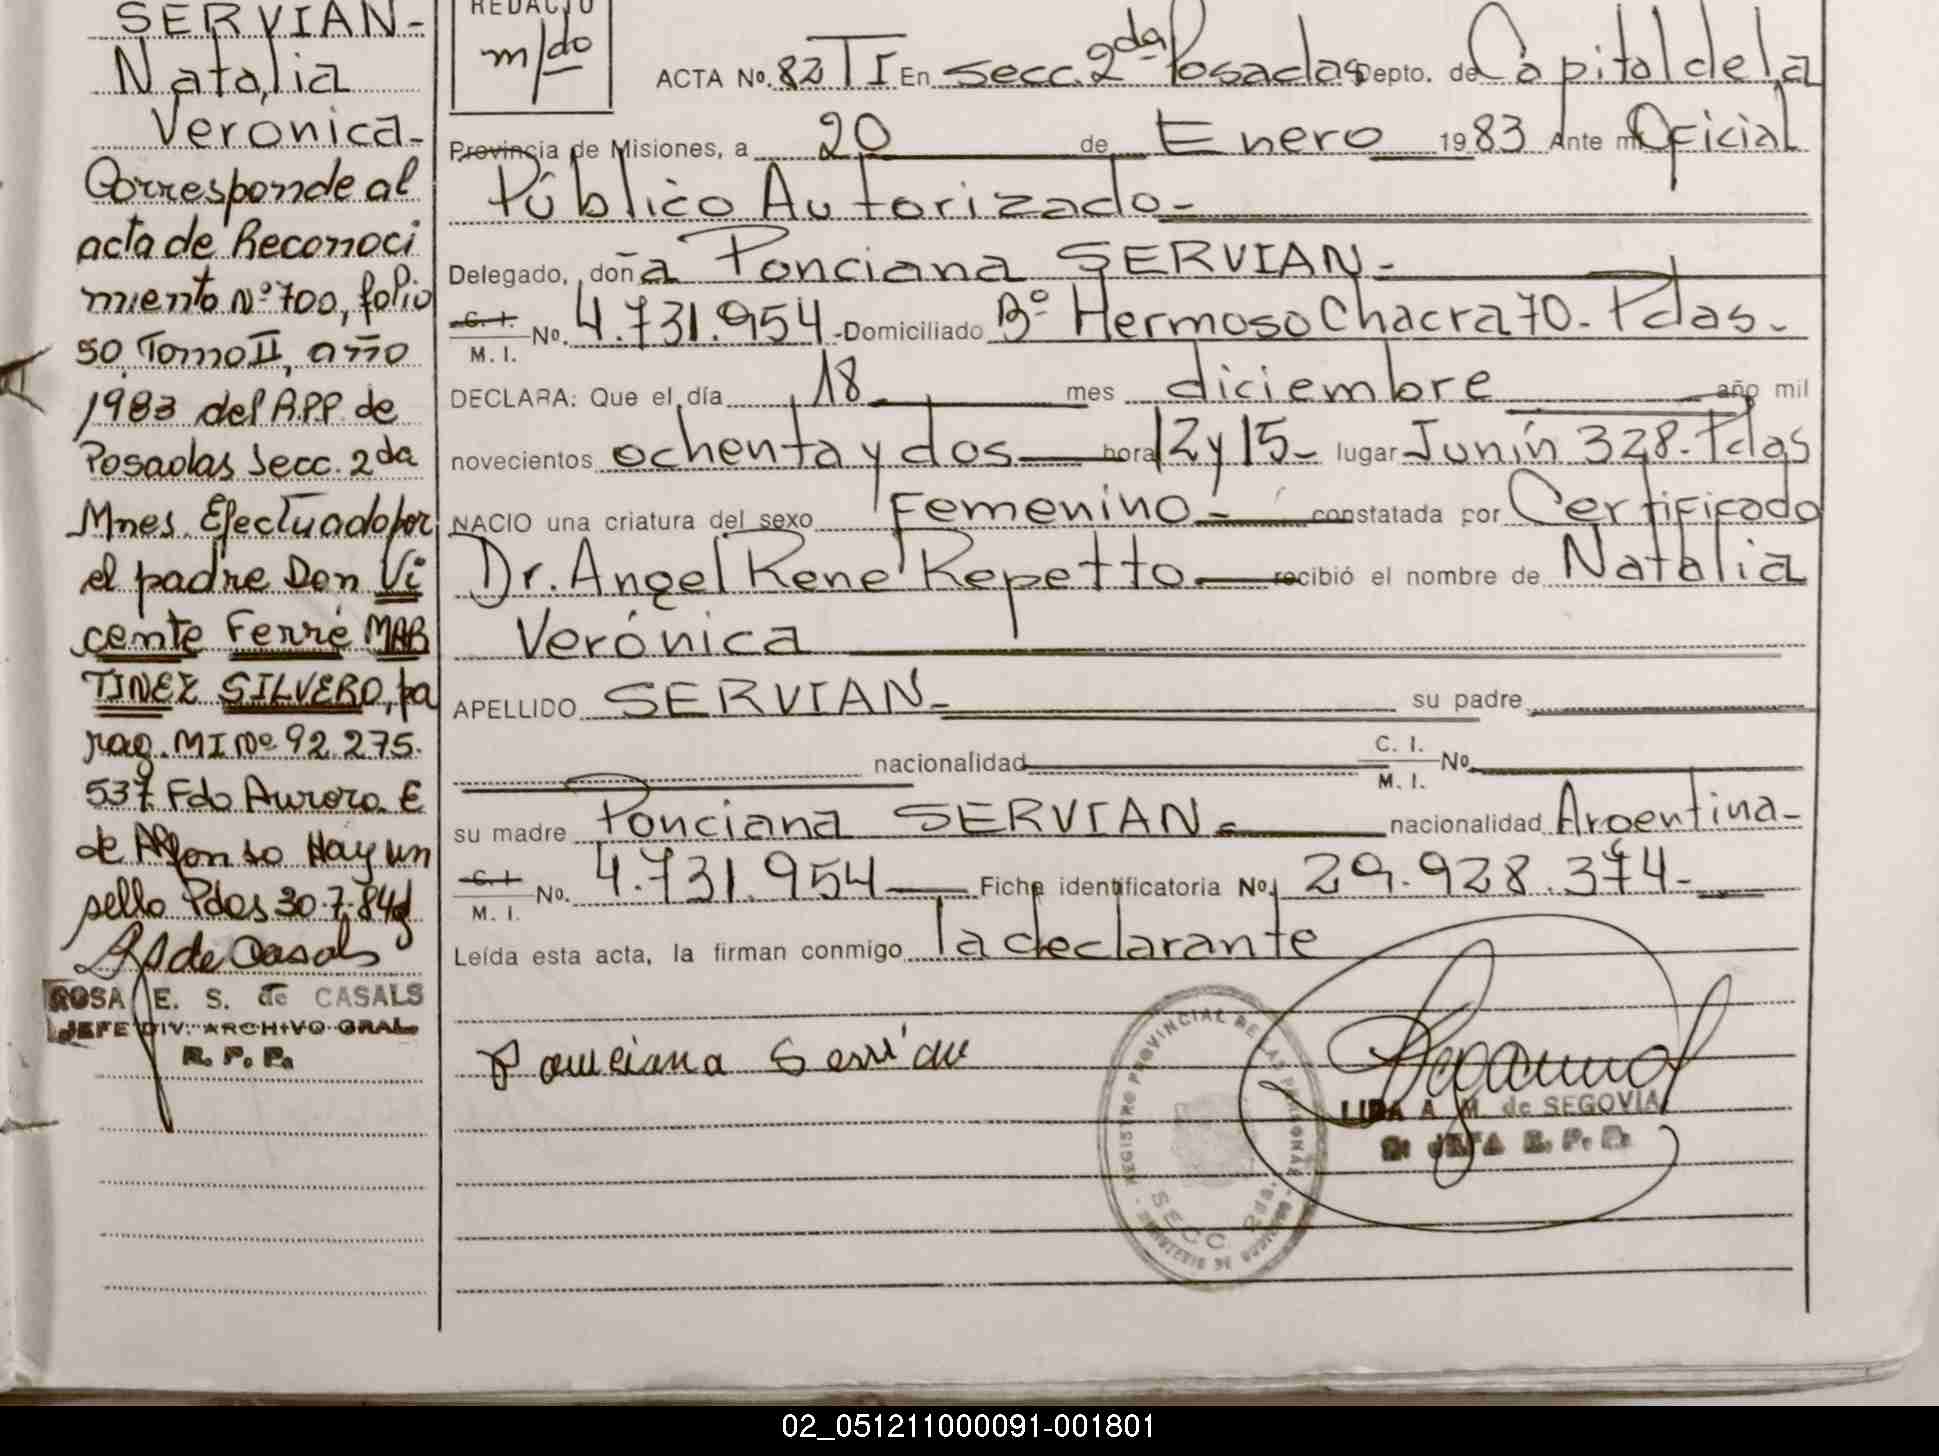 SERVIAN-
Natalia
Veronica-
Corresponde al
acta de Reconoci
miento Nº 700, folio
50, Tomo II, año
1983 del A.P.P. de
Posadas Secc. 2da
Mnes. Efectuado por
el padre Don Vi
cente Ferré MAR
TINEZ SILVERO, pa
rag. MI Nº 92.275.
537 Fdo Aurora E
de Alfonso Hay un
sello Pdas 30.7.84
ROSA E. S. de CASALS
JEFE DIV. ARCHIVO GRAL.
R. P. P.
REDACTO
m/do
ACTA No. 82 TI En Secc. 2da Posadas Depto. de Capital de la
Provincia de Misiones, a 20 de Enero 1983 Ante mi Oficial
Público Autorizado-
Delegado, doña Ponciana SERVIAN-
C. I.
M. I. No. 4.731.954 - Domiciliado Bº Hermoso Chacra 70- Pdas-
DECLARA: Que el día 18 mes diciembre año mil
novecientos ochenta y dos hora 12 y 15- lugar Junín 328- Pdas
NACIO una criatura del sexo Femenino- constatada por Certificado
Dr. Angel Rene Repetto recibió el nombre de Natalia
Verónica
APELLIDO SERVIAN- su padre
nacionalidad C. I.
M. I. No.
su madre Ponciana SERVIAN- nacionalidad Argentina-
C. I.
M. I. No. 4.731.954 Ficha identificatoria No. 29.928.374-
Leída esta acta, la firman conmigo la declarante
Pounciana Servian
REGISTRO PROVINCIAL DE LAS PERSONAS
SECC. 2da.
LIDA A. M. de SEGOVIA
2º JEFA R. P. P.
02_051211000091-001801